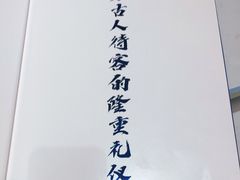 古人待客的隆重礼仪